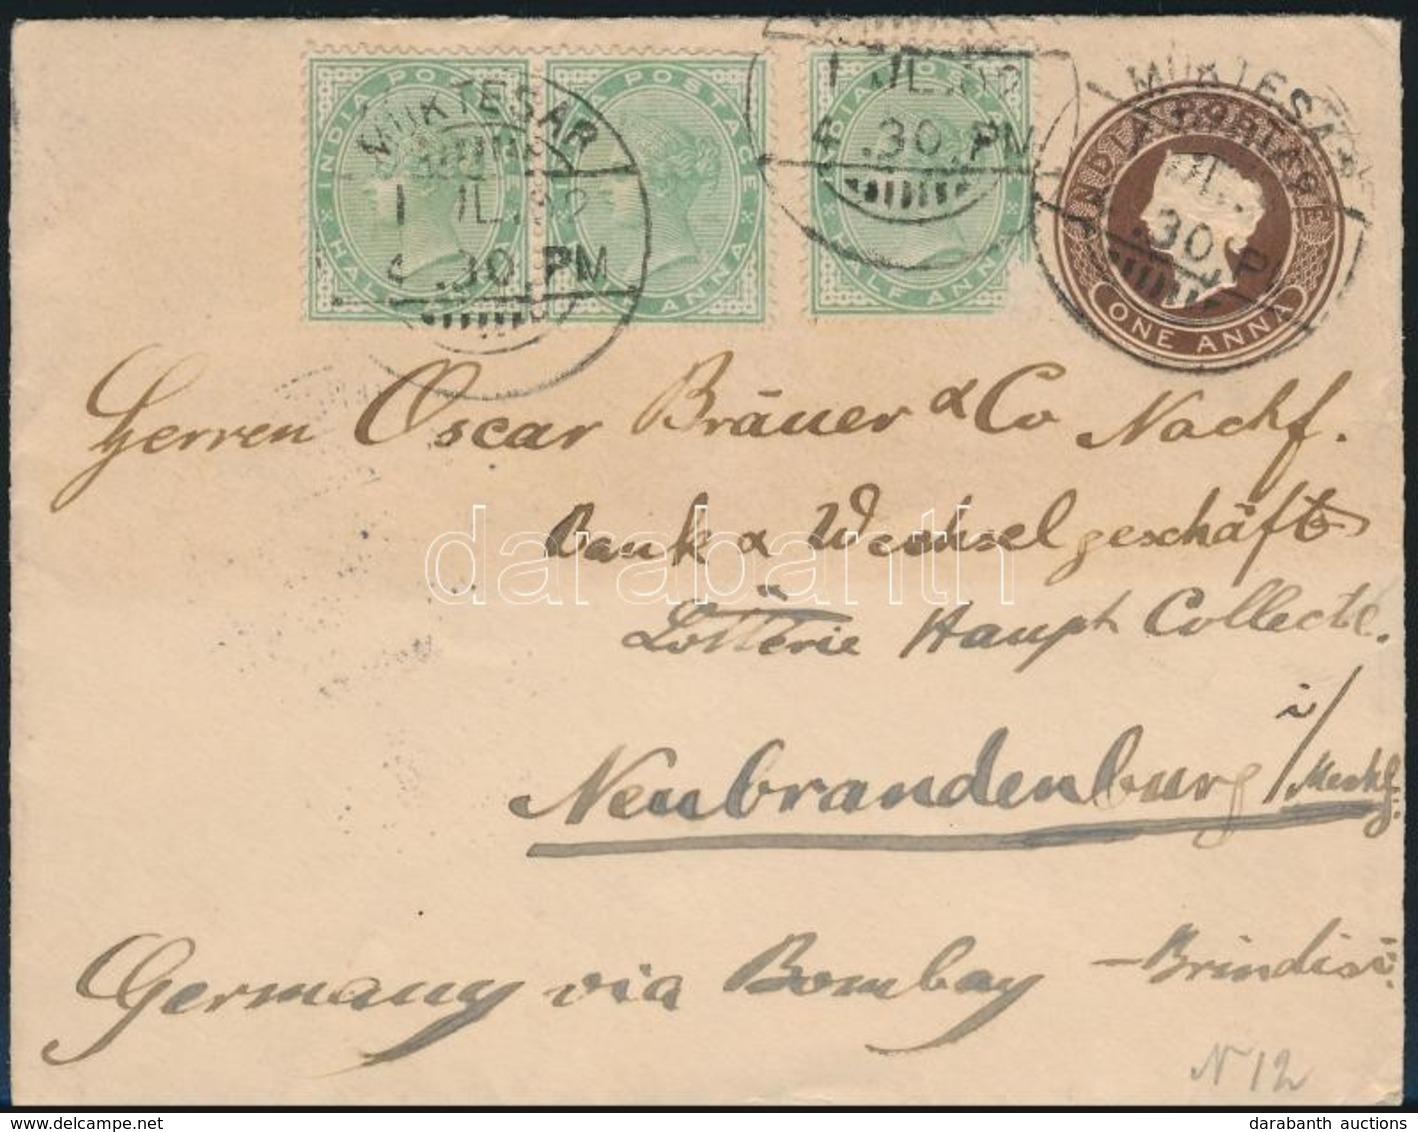 INDIA POSTAGE
HALF ANNA
INDIA POSTAGE
HALF ANNA
INDIA POSTAGE
HALF ANNA
INDIA POSTAGE
ONE ANNA
MUKTESAR
1 JL.02
4.30 PM
1 JL.02
4.30 PM
MUKTESAR
JL
.30 P
Herren Oscar Bräuer & Co Nachf.
Bank & Wechselgeschäft
Lotterie Haupt Collecte.
Neubrandenburg i/Meckl.
Germany via Bombay – Brindisi
N 12
darabanth
darabanth auctions